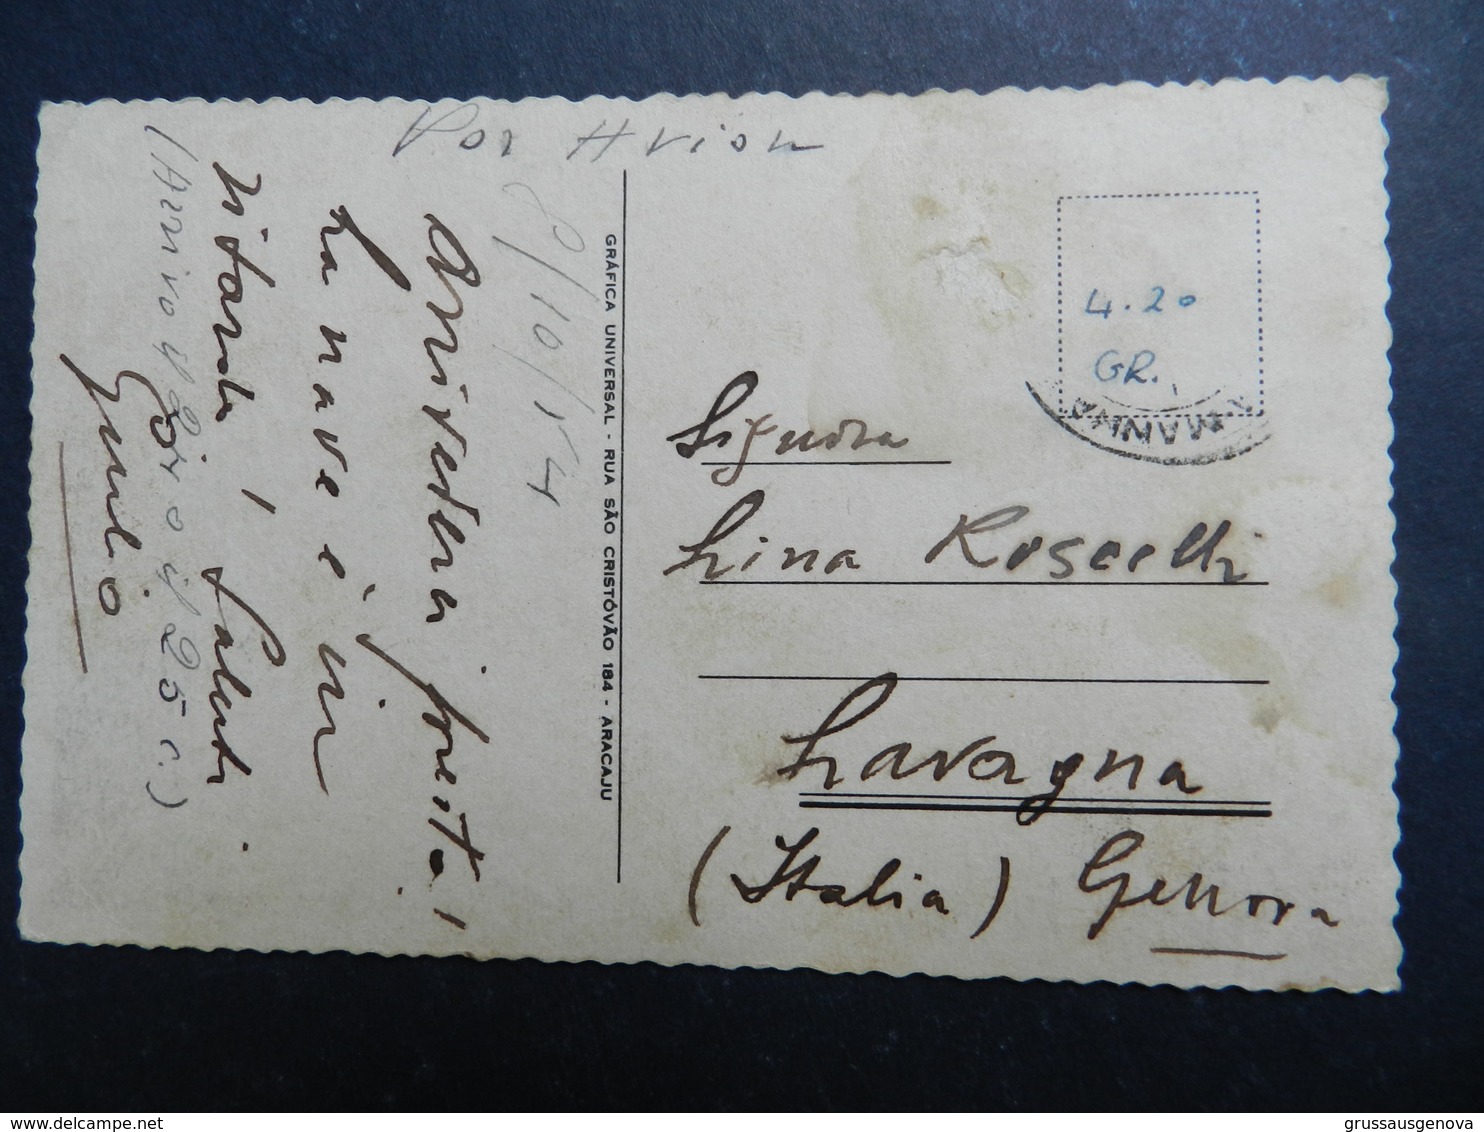 Por Avion
8/10/54
Arrivederci presto!
La nave è in
ritardo! Saluti
Giulio
(Arrivo il 25 c.)
GRÁFICA UNIVERSAL - RUA SÃO CRISTÓVÃO 184 - ARACAJU
4.20
GR.
MANNA
Signora
Lina Roscelli
Lavagna
(Italia) Genova
delcampe.net
grussausgenova